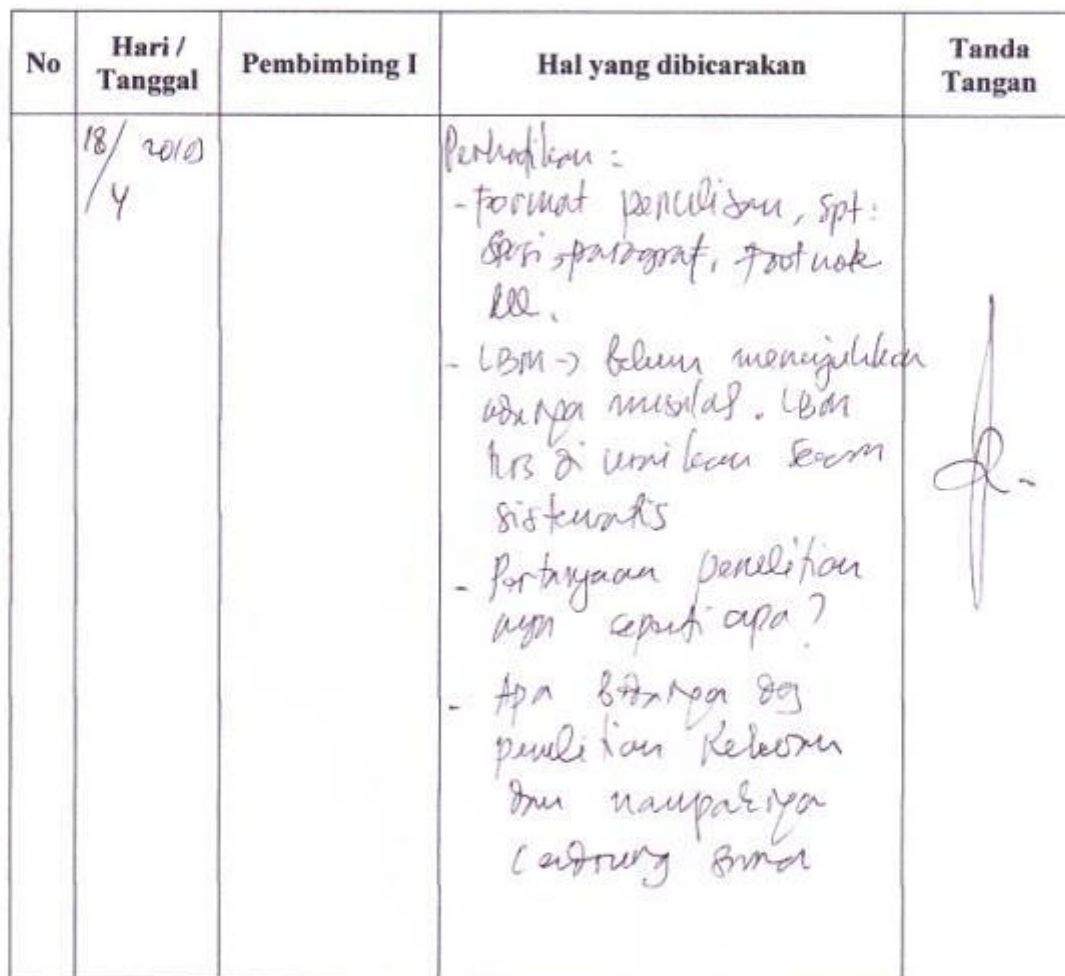 No
Hari /
Tanggal
Pembimbing I
Hal yang dibicarakan
Tanda
Tangan
18/
/4
Perhatikan :
- Format penulisan, spt :
spasi, paragraf, footnote
dll.
- LBM -> Belum menunjukkan
adanya masalah. LBM
hrs di uraikan secara
sistematis
- Pertanyaan penelitian
nya seperti apa ?
- Apa bedanya dg
penelitian
dan nampaknya
cendrung sama